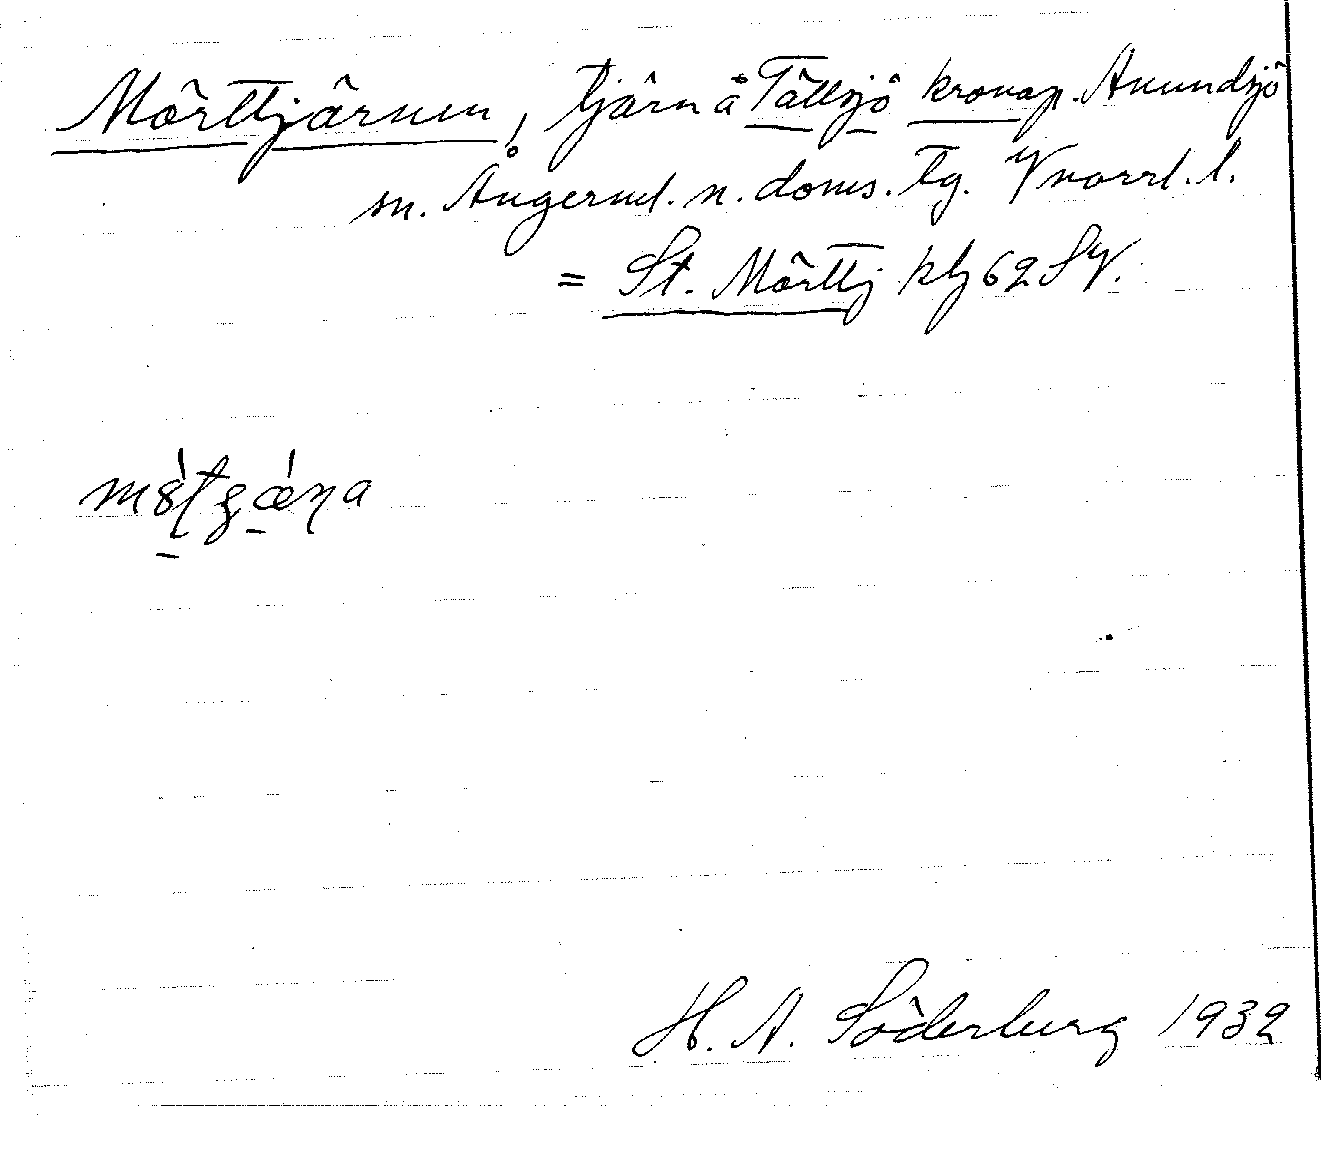 Mörttjärnen, tjärn å Tällsjö kronop. Anundsjö
sn. Ångerml. n. doms. tg. Vnorrl. l.
= St. Mörttj kbl 62 SV.
H. A. Söderberg 1932